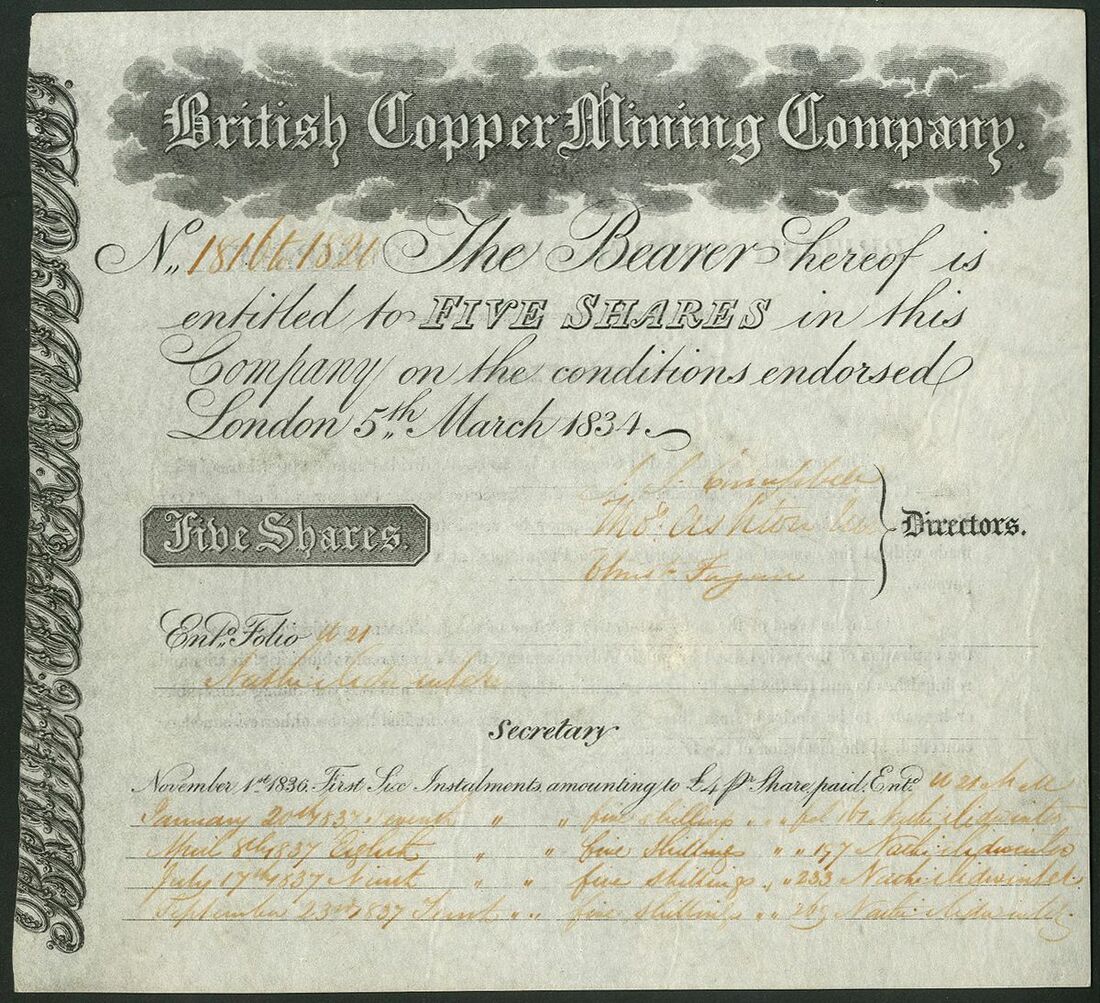 British Copper Mining Company.
No. 1816 to 1820 The Bearer hereof is
entitled to FIVE SHARES in this
Company on the conditions endorsed
London 5th March 1834.
Campbell
Five Shares.
Thos. Ashton
Directors.
Christr. Fagan
Entd. Folio 21
Secretary
November 1st 1836. First Six Instalments amounting to £4 pr. Share paid. Entd. 21
January 20th 1837 Seventh " " five shillings " " fol 161 Midwinter
April 8th 1837 Eighth " " five shillings " " 197 Midwinter
July 17th 1837 Ninth " " five shillings " " 233 Midwinter
September 23rd 1837 Tenth " " five shillings " " 269 Midwinter